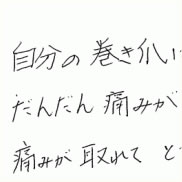 自分の巻き爪
だんだん痛みが
痛みが取れてと